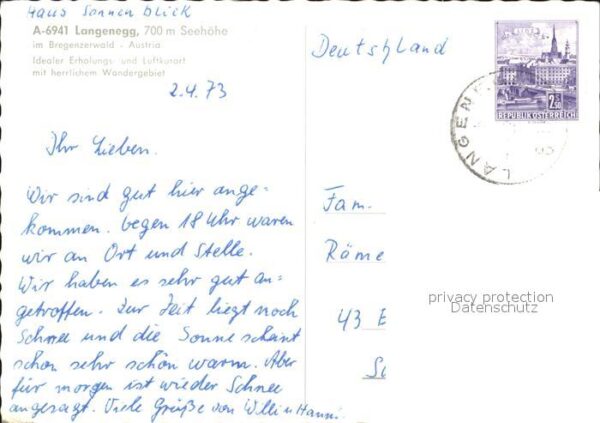 Haus Sonnenblick
A-6941 Langenegg, 700 m Seehöhe
im Bregenzerwald - Austria
Idealer Erholungs- und Luftkurort
mit herrlichem Wandergebiet
2.4.73
Ihr Lieben.
Wir sind gut hier ange-
kommen. Gegen 18 Uhr waren
wir an Ort und Stelle.
Wir haben es sehr gut an-
getroffen. Zur Zeit liegt noch
Schnee und die Sonne scheint
schon sehr schön warm. Aber
für morgen ist wieder Schnee
angesagt. Viele Grüße von Willi u Hanni
Deutschland
2.50
REPUBLIK ÖSTERREICH
LANGEN
Fam.
Räme
43 E
privacy protection
Datenschutz